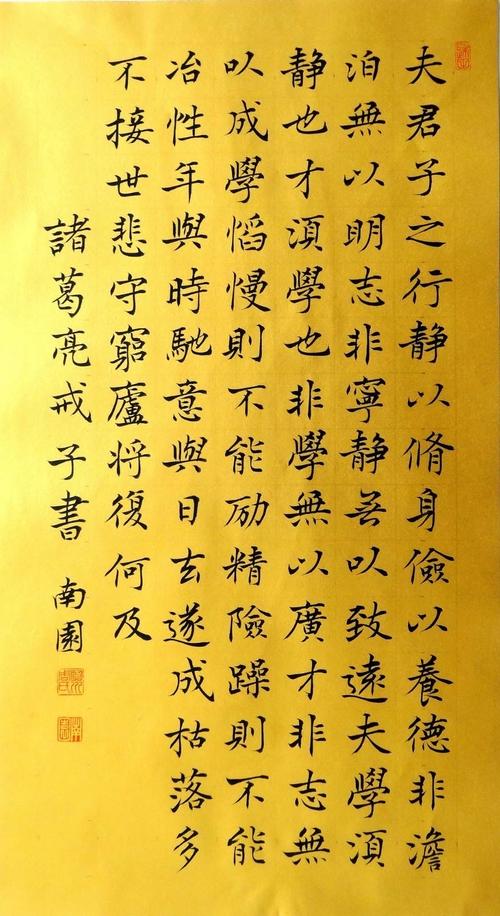 夫君子之行静以脩身儉以養德非澹
泊無以明志非寧静无以致遠夫學須
静也才須學也非學無以廣才非志無
以成學慆慢則不能励精險躁則不能
冶性年與時馳意與日去遂成枯落多
不接世悲守窮廬将復何及
諸葛亮戒子書 南園